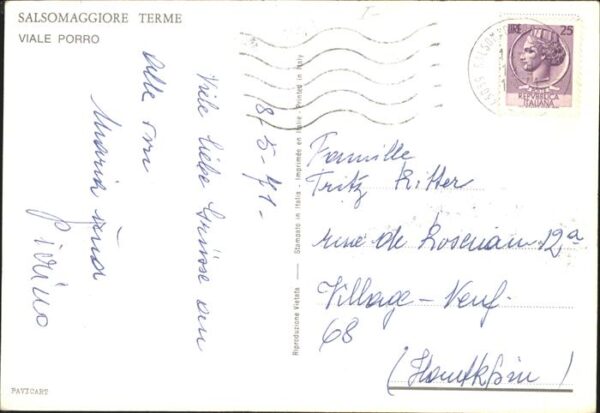 SALSOMAGGIORE TERME
VIALE PORRO
18-5-71-
Viele liebe Grüsse an
Alle von
Maria und
Pierino
Riproduzione Vietata — Stampato in Italia - Imprimée en Italie - Printed in Italy
LIRE 25
REPVBBLICA
ITALIANA
Famille
Fritz Ritter
rue de Rosenau 12a
Village-Neuf.
68
(Hautrhin)
PAVICART